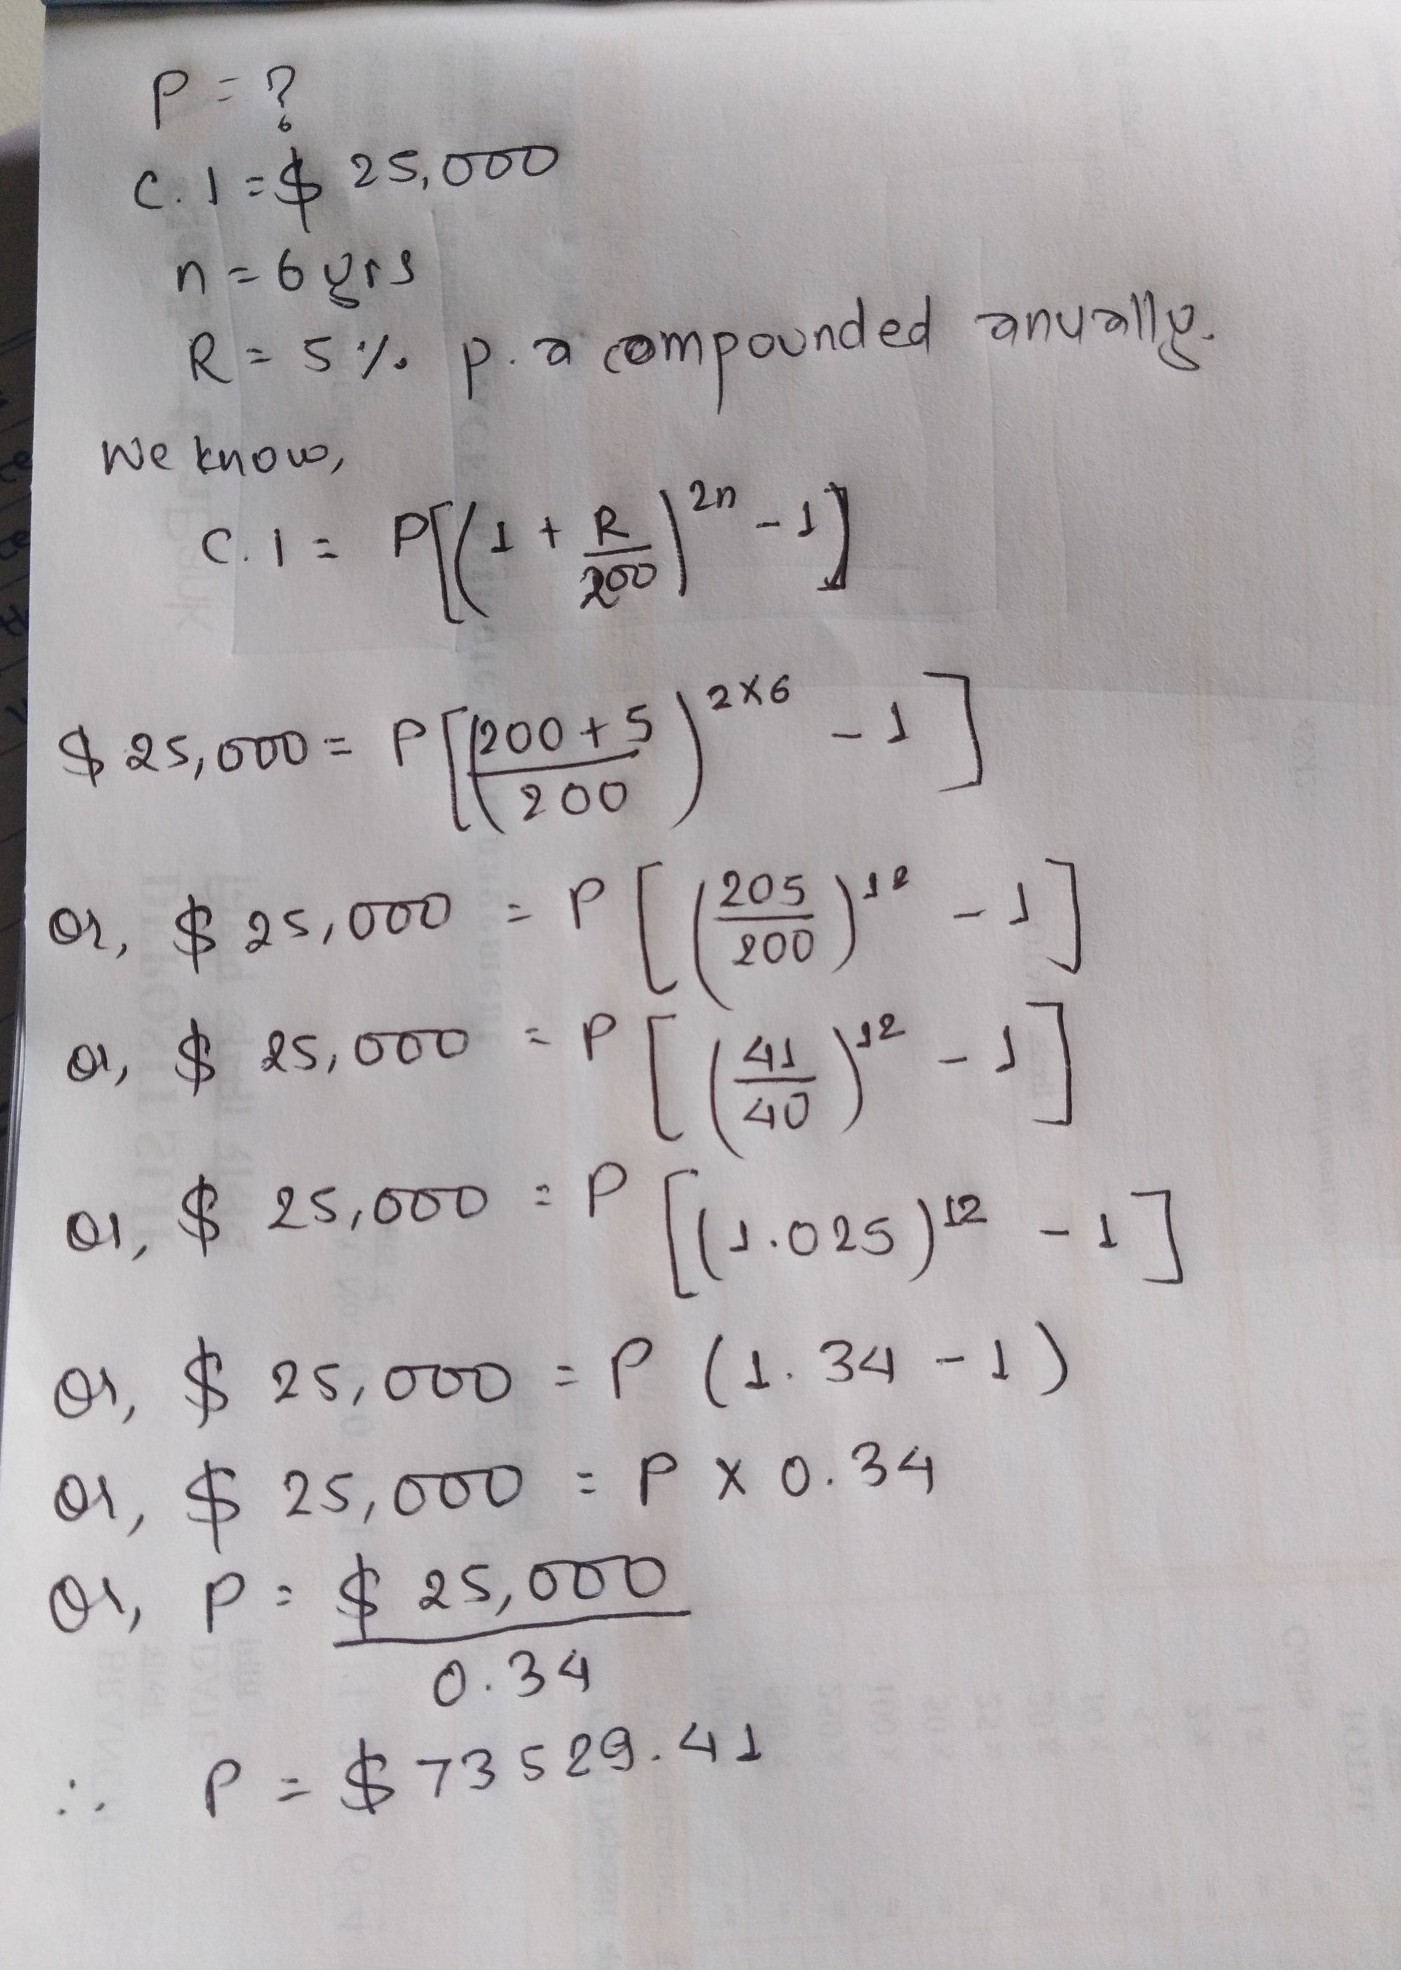 P = ?
C.I = $ 25,000
n = 6 yrs
R = 5 % p.a compounded anually.
We know,
C.I = P[(1 + R/200)^2n - 1]
$ 25,000 = P[(200 + 5/200)^2×6 - 1]
or, $ 25,000 = P[(205/200)^12 - 1]
or, $ 25,000 = P[(41/40)^12 - 1]
or, $ 25,000 = P[(1.025)^12 - 1]
or, $ 25,000 = P (1.34 - 1)
or, $ 25,000 = P × 0.34
or, P = $ 25,000/0.34
∴ P = $ 73529.41